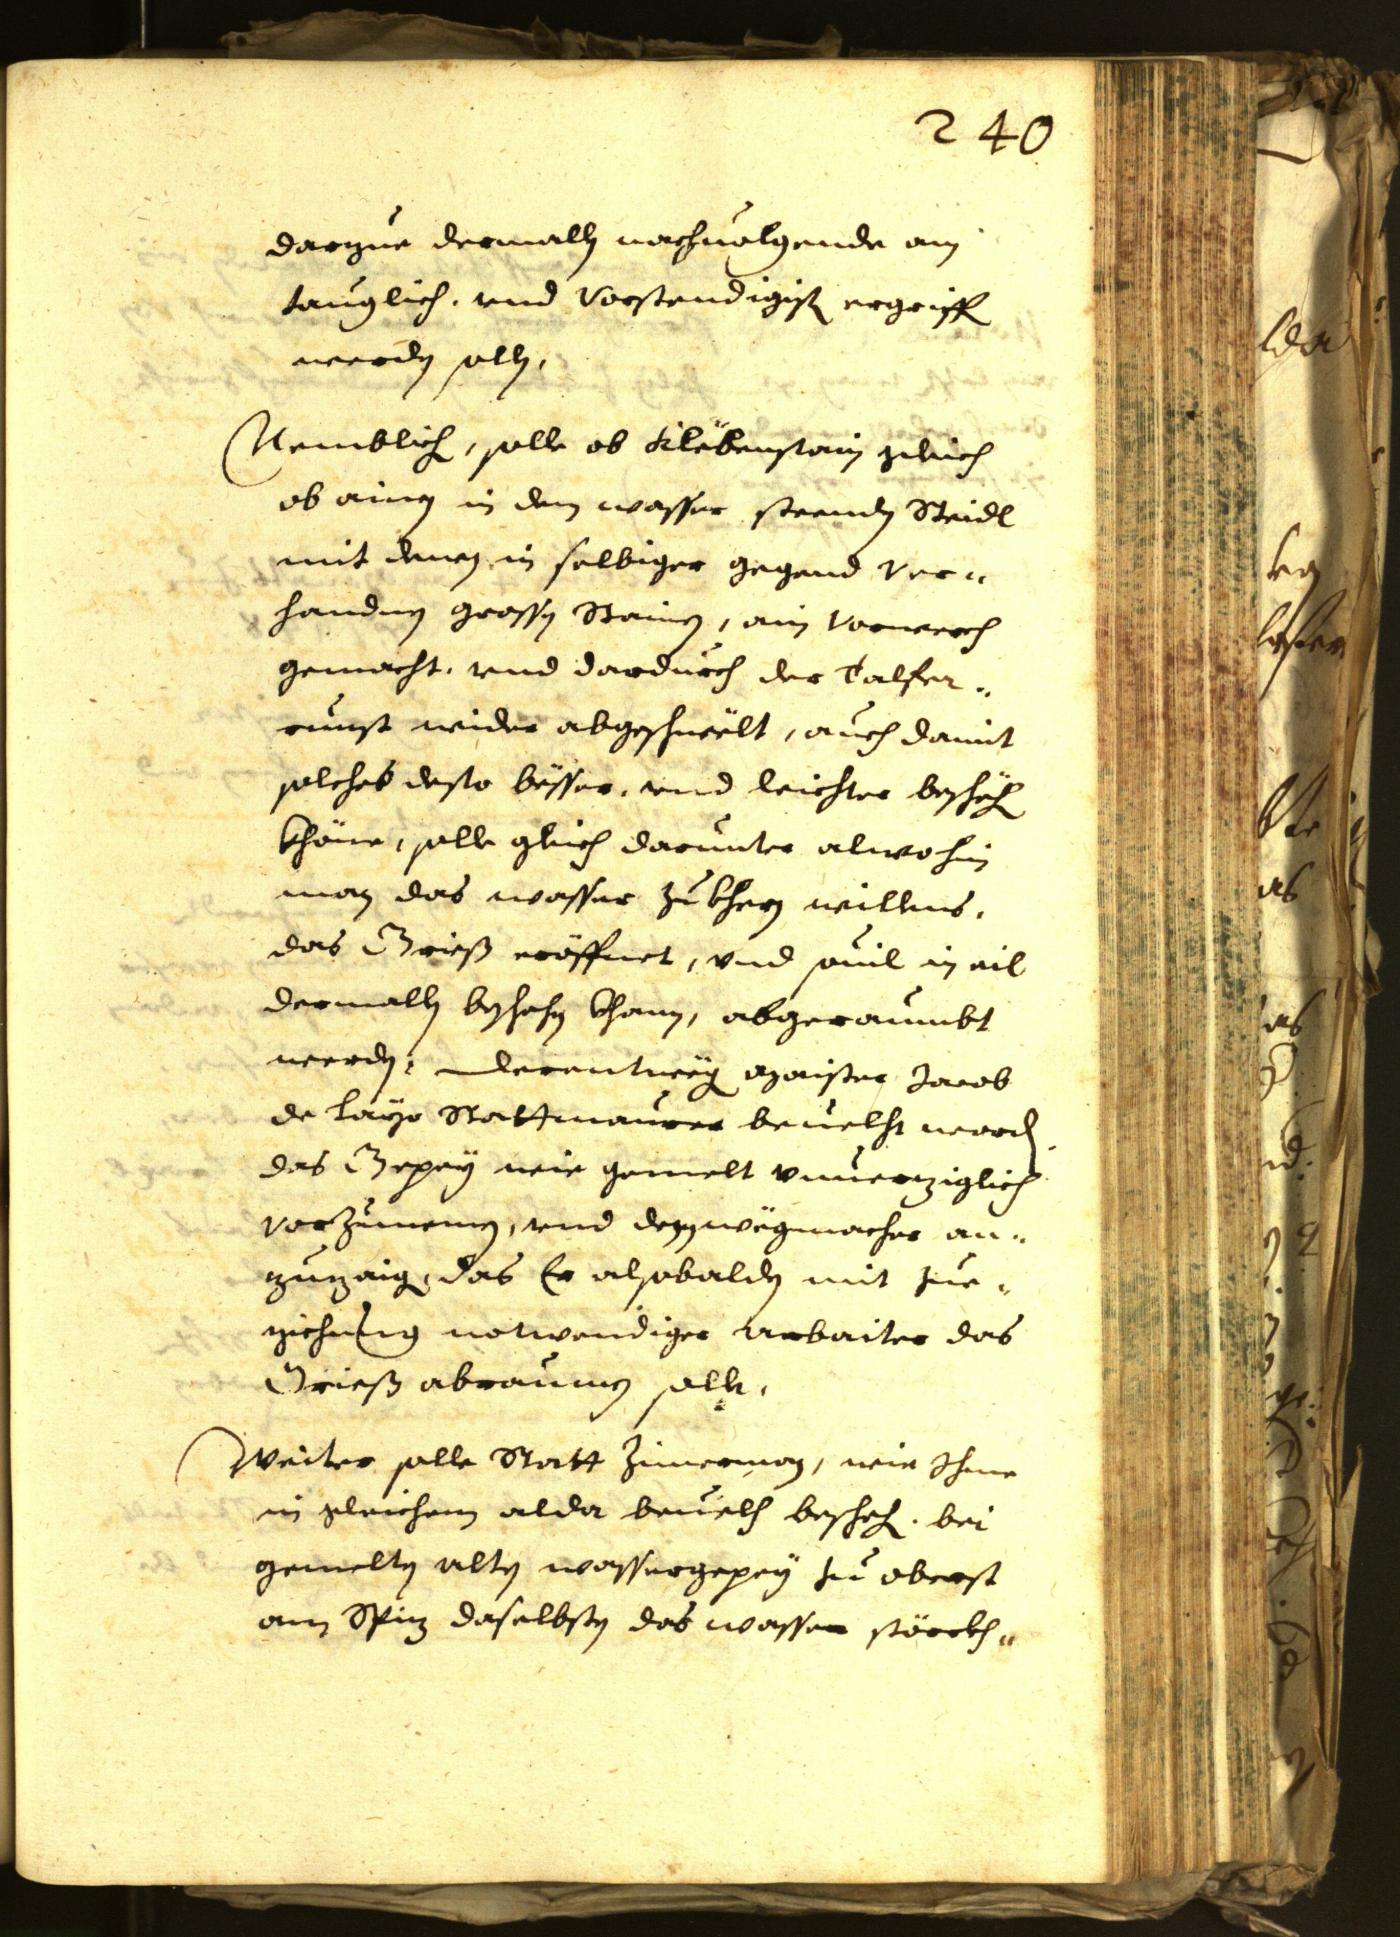 240
darzue dermalln nachuolgende am
tauglich. vnd Vorstendigist ergriffen
werden solln,
Nemblich, solle ob Klëbenstain gleich
ob ainen in dem wasser steenden Steidl
mit denen in selbiger gegend Ver¬
handnen grossen Stainen, ain Vorwerch
gemacht. vnd dardurch der Talfer¬
runst wider abgeschweëlt, auch damit
solches desto bësser. vnd leichter beschechen
khöne, solle gleich darunter alwohin
man das wasser zukhern willens,
das Grieß eröffnet, vnd souil in eil
dermalln beschechen khann, abgeraumbt
werden, Derentweëg maister Jacob
de Layo Stattmaurer beuelht worden
das Gepey wie gemelt vnuerziglich
vorzunemen, vnd dem wëgmacher an¬
zuzaigen, das Er alsobalden mit zue¬
ziehung notwendiger arbaiter das
Grieß abraumen solle,
Weiter solle Statt Zimerman, wie Ihme
in gleichem alda beuelch beschechen. bei
gemelten alten wassergepey zu oberst
am Spiz daselbsten das wasser störckh¬